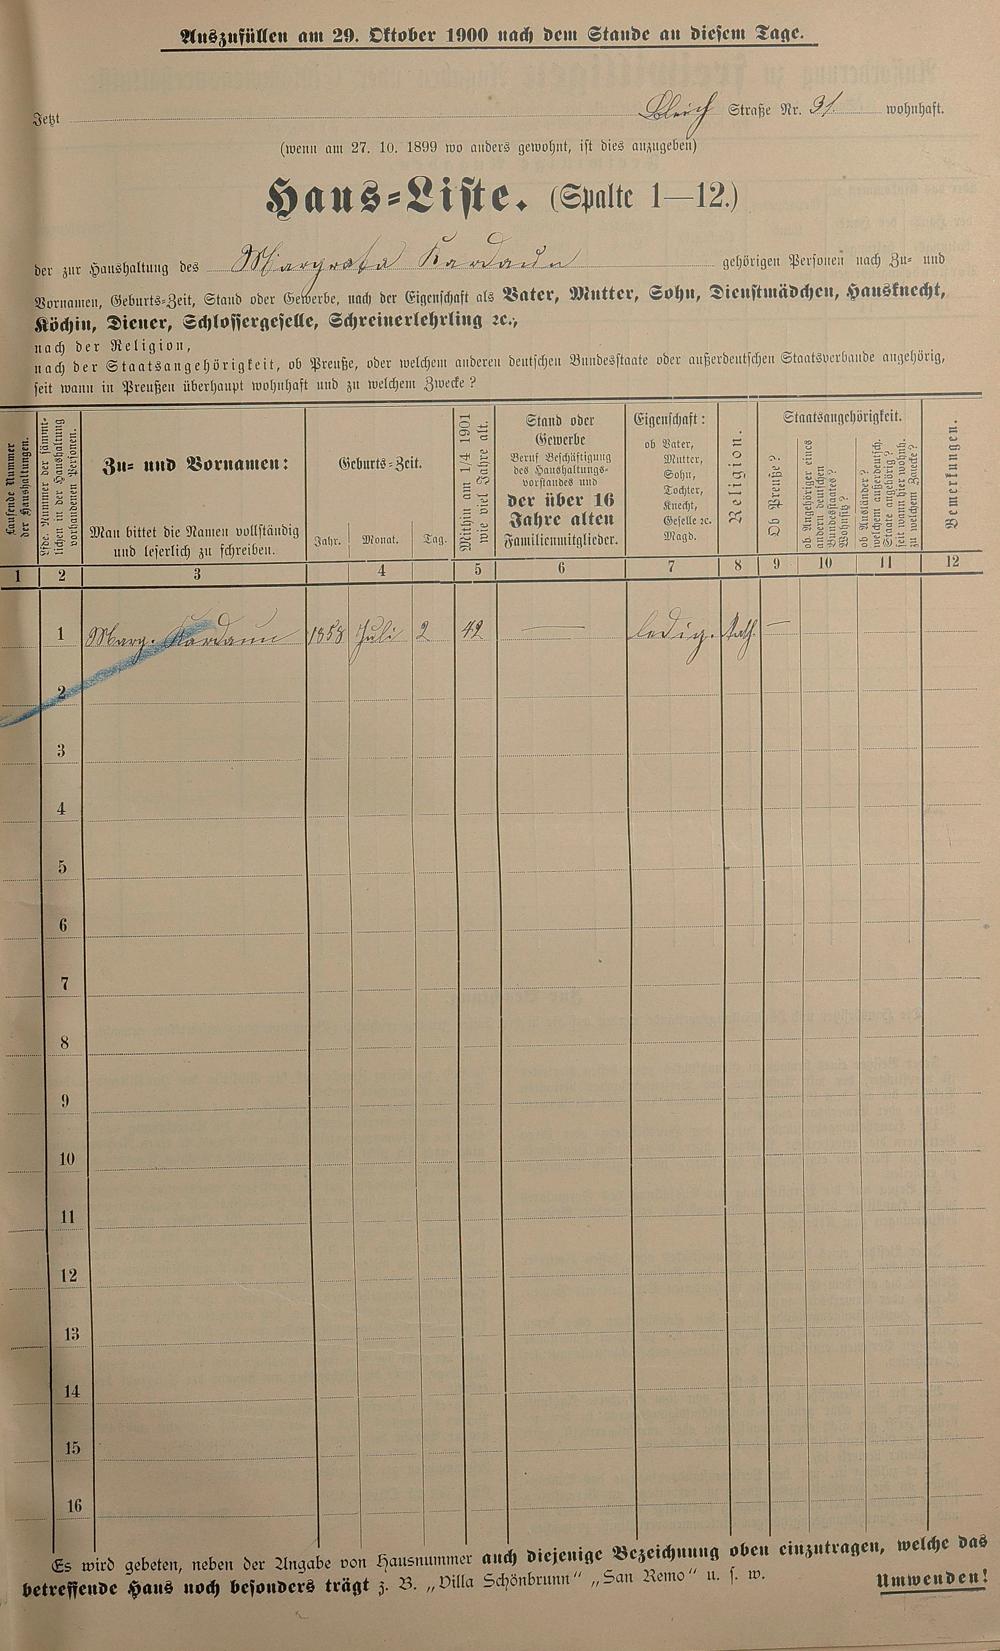 Auszufüllen am 29. Oktober 1900 nach dem Stande an diesem Tage.
Jetzt Bleich Straße Nr. 31. wohnhaft.
(wenn am 27. 10. 1899 wo anders gewohnt, ist dies anzugeben)
Haus=Liste. (Spalte 1—12.)
der zur Haushaltung des Margreta Kardaun gehörigen Personen nach Zu= und
Vornamen, Geburts=Zeit, Stand oder Gewerbe, nach der Eigenschaft als Vater, Mutter, Sohn, Dienstmädchen, Hausknecht,
Köchin, Diener, Schlossergeselle, Schreinerlehrling ꝛc.,
nach der Religion,
nach der Staatsangehörigkeit, ob Preuße, oder welchem anderen deutschen Bundesstaate oder außerdeutschen Staatsverbande angehörig,
seit wann in Preußen überhaupt wohnhaft und zu welchem Zwecke?
Laufende Nummer
der Haushaltungen.
Lfde. Nummer der sämmt-
lichen in der Haushaltung
vorhandenen Personen.
Zu= und Vornamen:
Man bittet die Namen vollständig
und leserlich zu schreiben.
Geburts=Zeit.
Jahr. Monat. Tag.
Mithin am 1/4 1901
wie viel Jahre alt.
Stand oder
Gewerbe
Beruf Beschäftigung
des Haushaltungs-
vorstandes und
der über 16
Jahre alten
Familienmitglieder.
Eigenschaft:
ob Vater,
Mutter,
Sohn,
Tochter,
Knecht,
Geselle ꝛc.
Magd.
Religion.
Staatsangehörigkeit.
Ob Preuße?
ob Angehöriger eines
andern deutschen
Bundesstaates?
Wohnsitz?
ob Ausländer?
welchem außerdeutsch.
Staate angehörig?
seit wann hier wohnh.
zu welchem Zwecke?
Bemerkungen.
1 2 3 4 5 6 7 8 9 10 11 12
1 Marg. Kardaun 1858 Juli 2 42 — ledig. Kath. —
2
3
4
5
6
7
8
9
10
11
12
13
14
15
16
Es wird gebeten, neben der Angabe von Hausnummer auch diejenige Bezeichnung oben einzutragen, welche das
betreffende Haus noch besonders trägt z. B. „Villa Schönbrunn“ „San Remo“ u. s. w.
Umwenden!